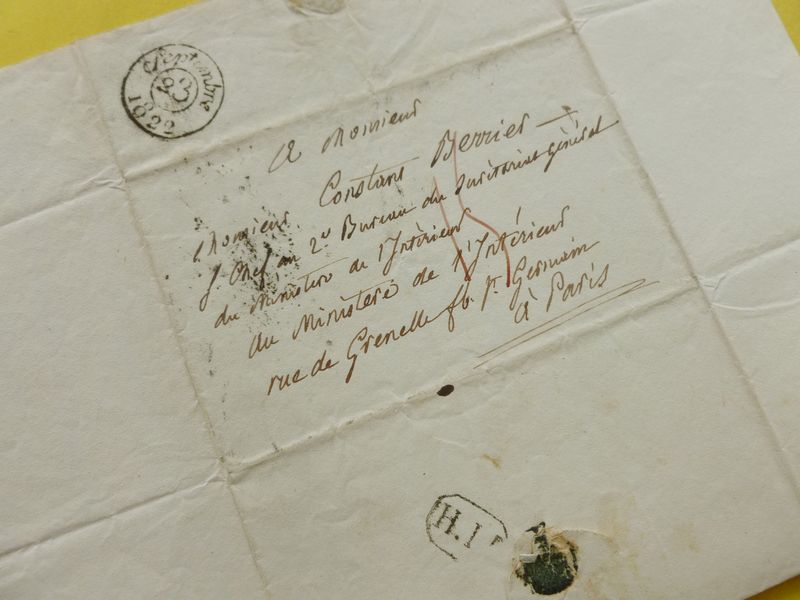 Septembre
1822
A Monsieur
Monsieur Constans Berrier
S. Chef au 2e Bureau du Sécrétariat général
du Ministère de l'Intérieur
au Ministère de l'Intérieur
rue de Grenelle fb. St. Germain
à Paris
H.I